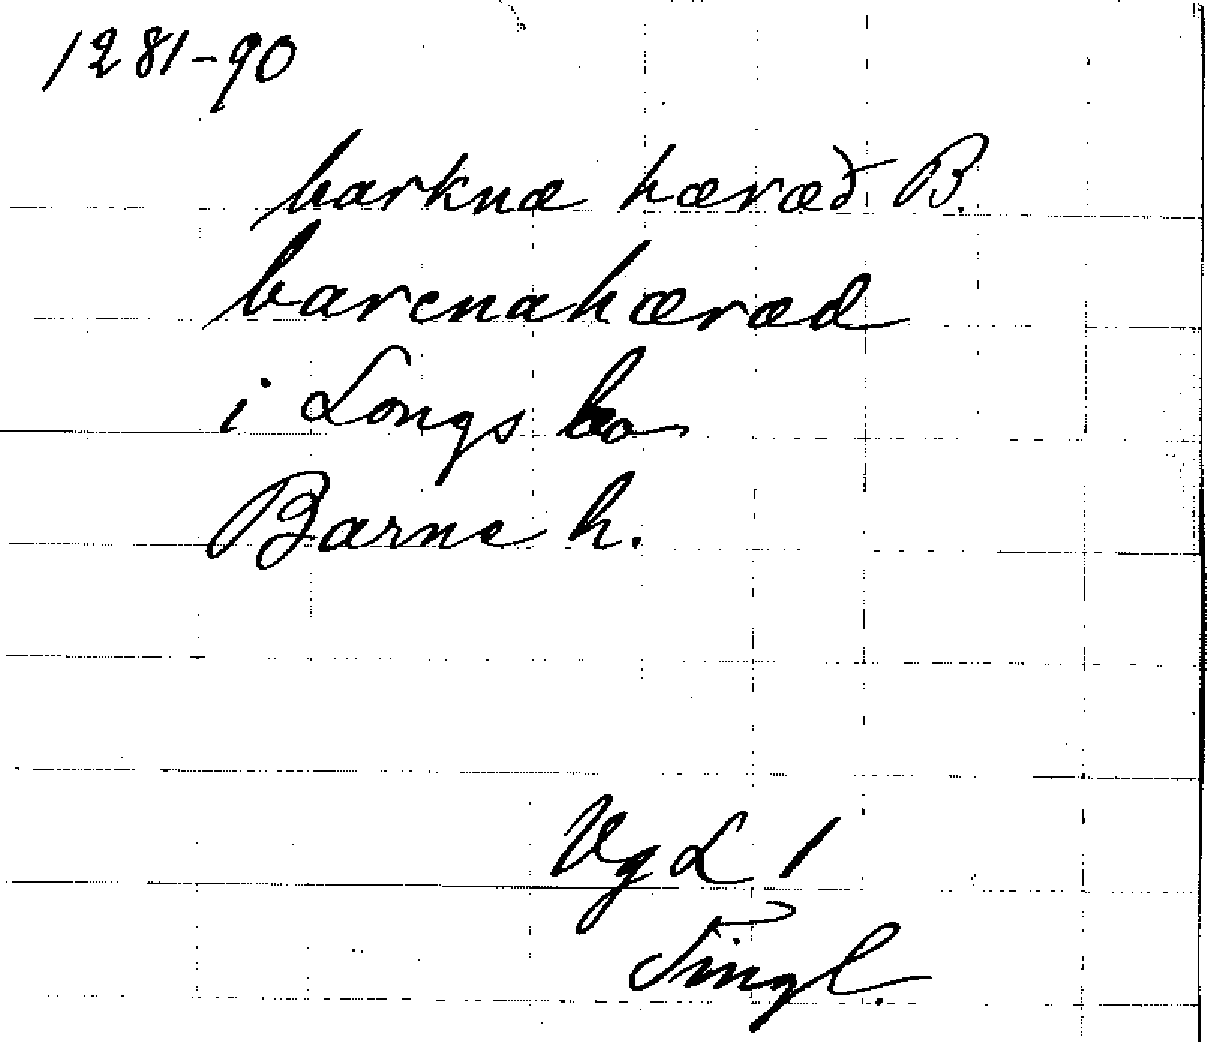 1281-90
barknæ hæræð B.
barcnahæræd
i Longs bo
Barne h.
VgL 1
Tingl.